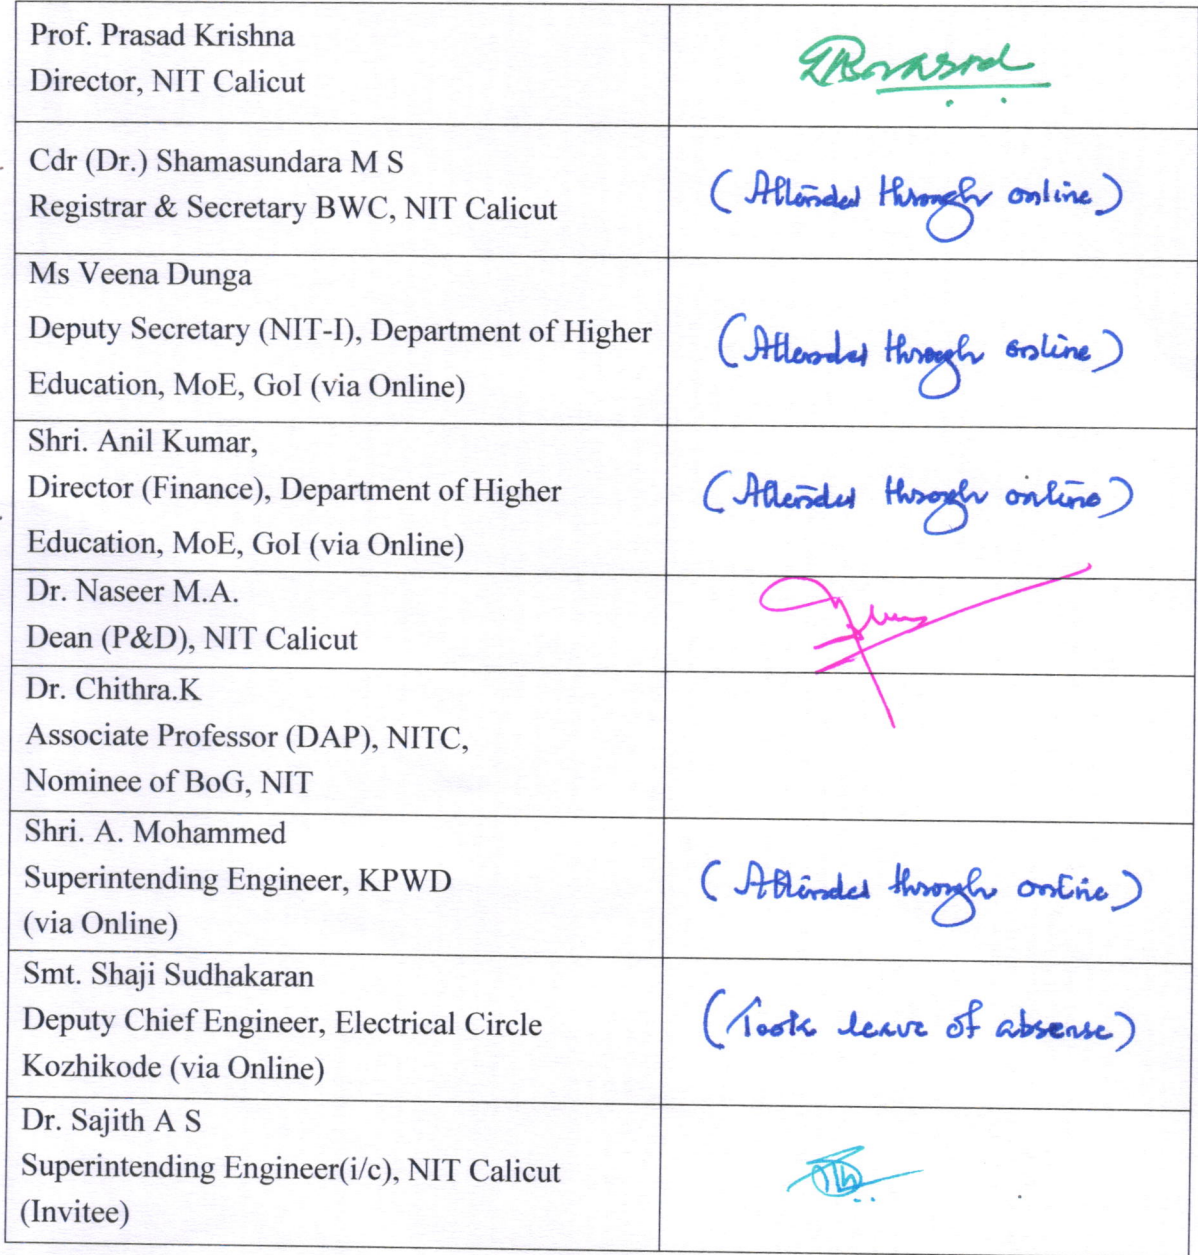 Prof. Prasad Krishna
Director, NIT Calicut
Cdr (Dr.) Shamasundara M S
Registrar & Secretary BWC, NIT Calicut
(Attended through online)
Ms Veena Dunga
Deputy Secretary (NIT-I), Department of Higher
Education, MoE, GoI (via Online)
(Attended through online)
Shri. Anil Kumar,
Director (Finance), Department of Higher
Education, MoE, GoI (via Online)
(Attended through online)
Dr. Naseer M.A.
Dean (P&D), NIT Calicut
Dr. Chithra.K
Associate Professor (DAP), NITC,
Nominee of BoG, NIT
Shri. A. Mohammed
Superintending Engineer, KPWD
(via Online)
(Attended through online)
Smt. Shaji Sudhakaran
Deputy Chief Engineer, Electrical Circle
Kozhikode (via Online)
(Took leave of absense)
Dr. Sajith A S
Superintending Engineer(i/c), NIT Calicut
(Invitee)